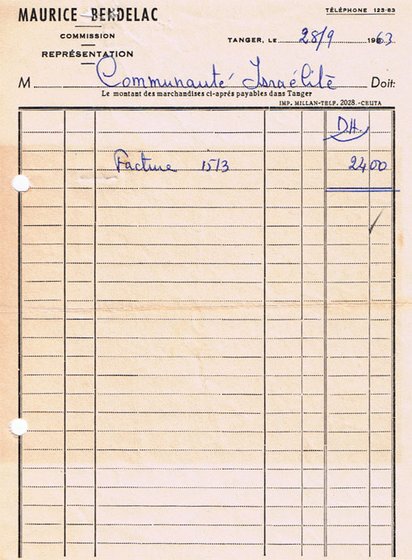 MAURICE BENDELAC
TÉLÉPHONE 123-83
COMMISSION
REPRÉSENTATION
TANGER, LE 28/9 1963
M Communauté Israélite Doit:
Le montant des marchandises ci-aprés payables dans Tanger
IMP. MILLAN-TELP. 2028.-CEUTA
DH.
Facture 15/3 2400